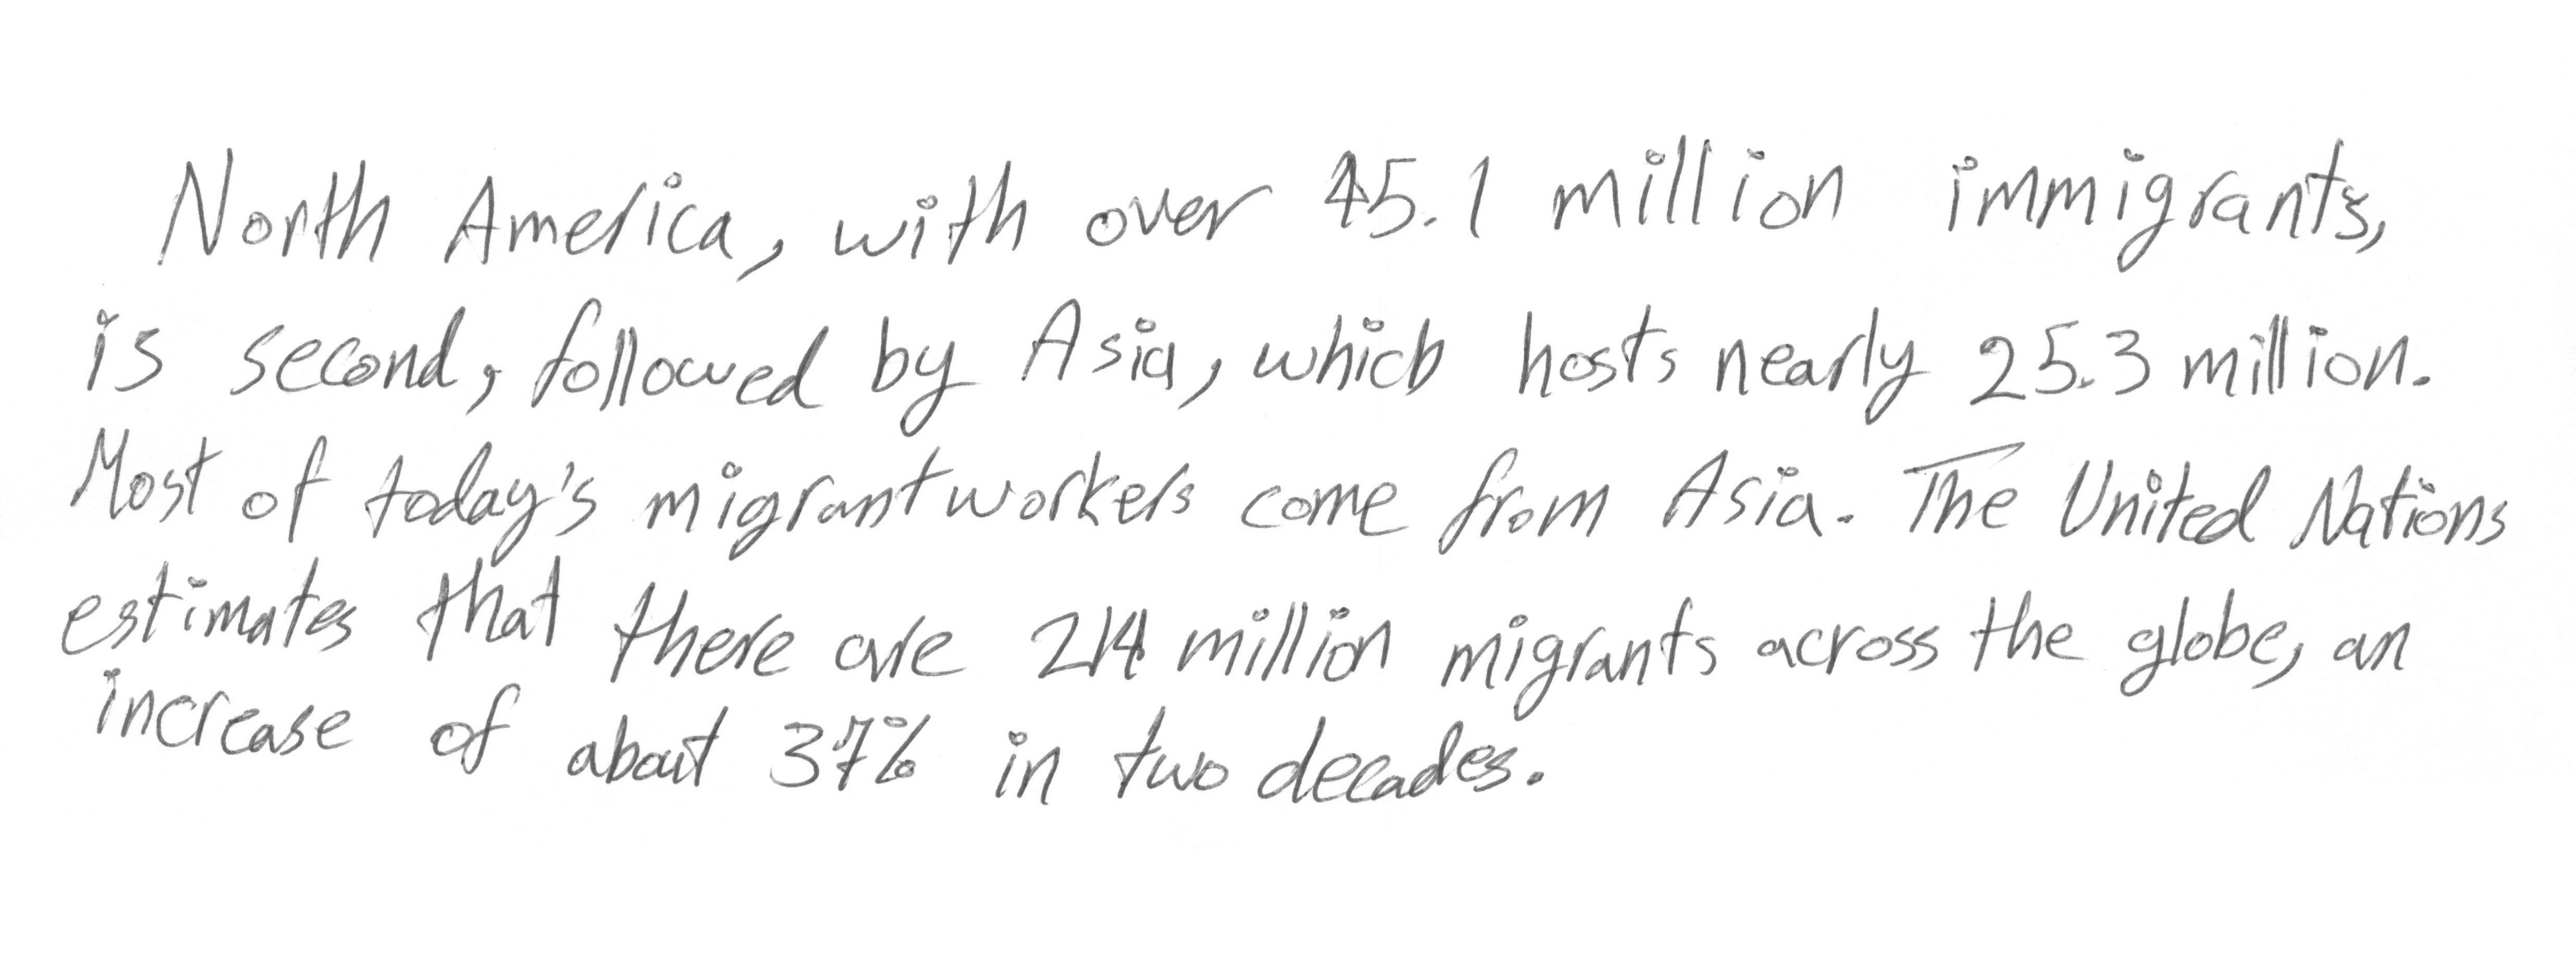 North America, with over 45.1 million immigrants,
is second, followed by Asia, which hosts nearly 25.3 million.
Most of today's migrant workers come from Asia. The United Nations
estimates that there are 214 million migrants across the globe, an
increase of about 37% in two decades.